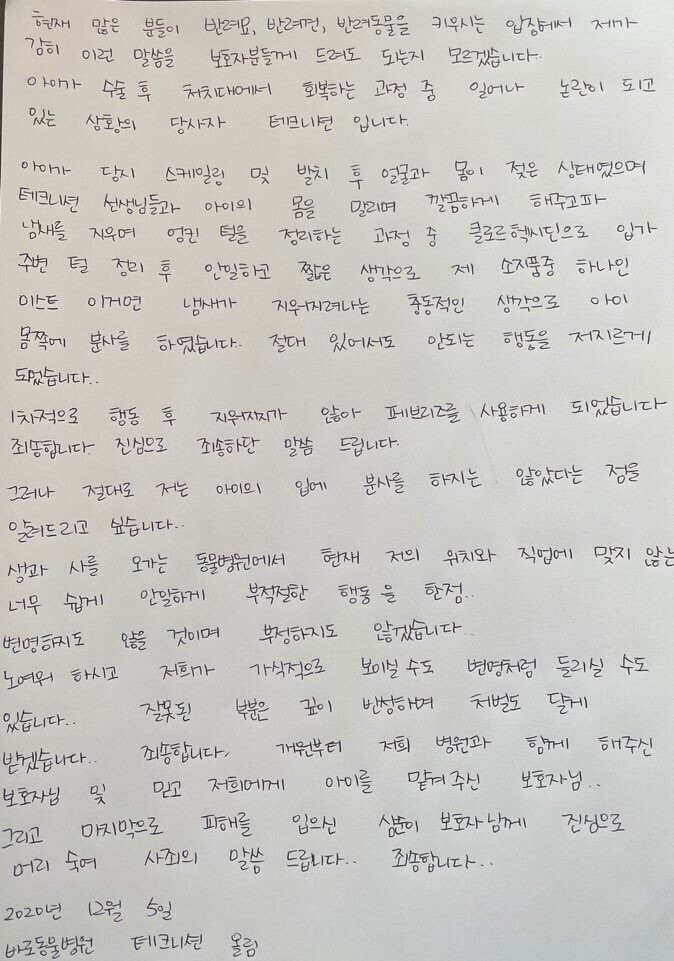 현재 많은 분들이 반려묘, 반려견, 반려동물을 키우시는 입장에서 제가
감히 이런 말씀을 보호자분들께 드려도 되는지 모르겠습니다.
아이가 수술 후 처치대에서 회복하는 과정 중 일어나 논란이 되고
있는 상황의 당사자 테크니션 입니다.
아이가 당시 스케일링 및 발치 후 얼굴과 몸이 젖은 상태였으며
테크니션 선생님들과 아이의 몸을 말리며 깔끔하게 해주고파
냄새를 지우며 엉킨 털을 정리하는 과정 중 클로르헥시딘으로 입가
주변 털 정리 후 안일하고 짧은 생각으로 제 소지품중 하나인
미스트 이거면 냄새가 지워지려나는 충동적인 생각으로 아이
몸쪽에 분사를 하였습니다. 절대 있어서도 안되는 행동을 저지르게
되었습니다..
1차적으로 행동 후 지워지지가 않아 페브리즈를 사용하게 되었습니다
죄송합니다. 진심으로 죄송하단 말씀 드립니다.
그러나 절대로 저는 아이의 입에 분사를 하지는 않았다는 점을
알려드리고 싶습니다..
생과 사를 오가는 동물병원에서 현재 저의 위치와 직업에 맞지 않는
너무 쉽게 안일하게 부적절한 행동을 한점..
변명하지도 않을 것이며 부정하지도 않겠습니다..
노여워 하시고 저희가 가식적으로 보이실 수도 변명처럼 들리실 수도
있습니다.. 잘못된 부분은 깊이 반성하며 처벌도 달게
받겠습니다.. 죄송합니다. 개원부터 저희 병원과 함께 해주신
보호자님 및 믿고 저희에게 아이를 맡겨주신 보호자님..
그리고 마지막으로 피해를 입으신 심순이 보호자님께 진심으로
머리 숙여 사죄의 말씀 드립니다.. 죄송합니다..
2020년 12월 5일
바로동물병원 테크니션 올림